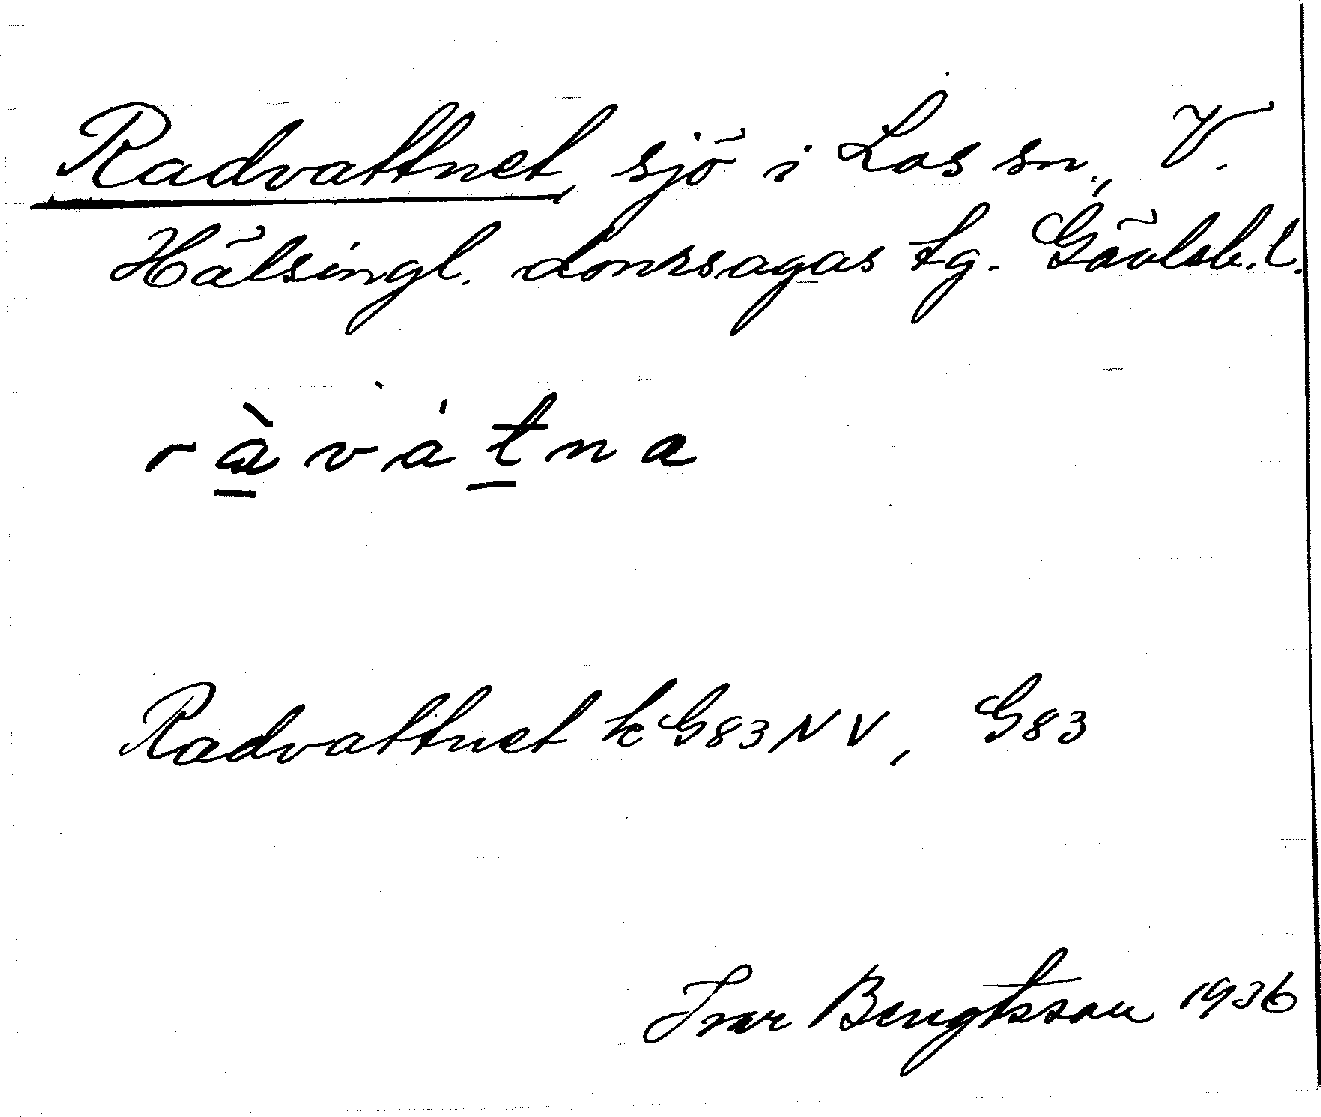 Radvattnet, sjö i Los sn, V.
Hälsingl. domsagas tg. Gävleb. l.
ràvátna
Radvattnet k G83NV, G83
Ivar Bengtsson 1936